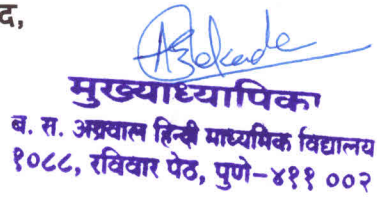 द,
मुख्याध्यापिका
ब. स. अग्रवाल हिन्दी माध्यमिक विद्यालय
१०८८, रविवार पेठ, पुणे-४११ ००२